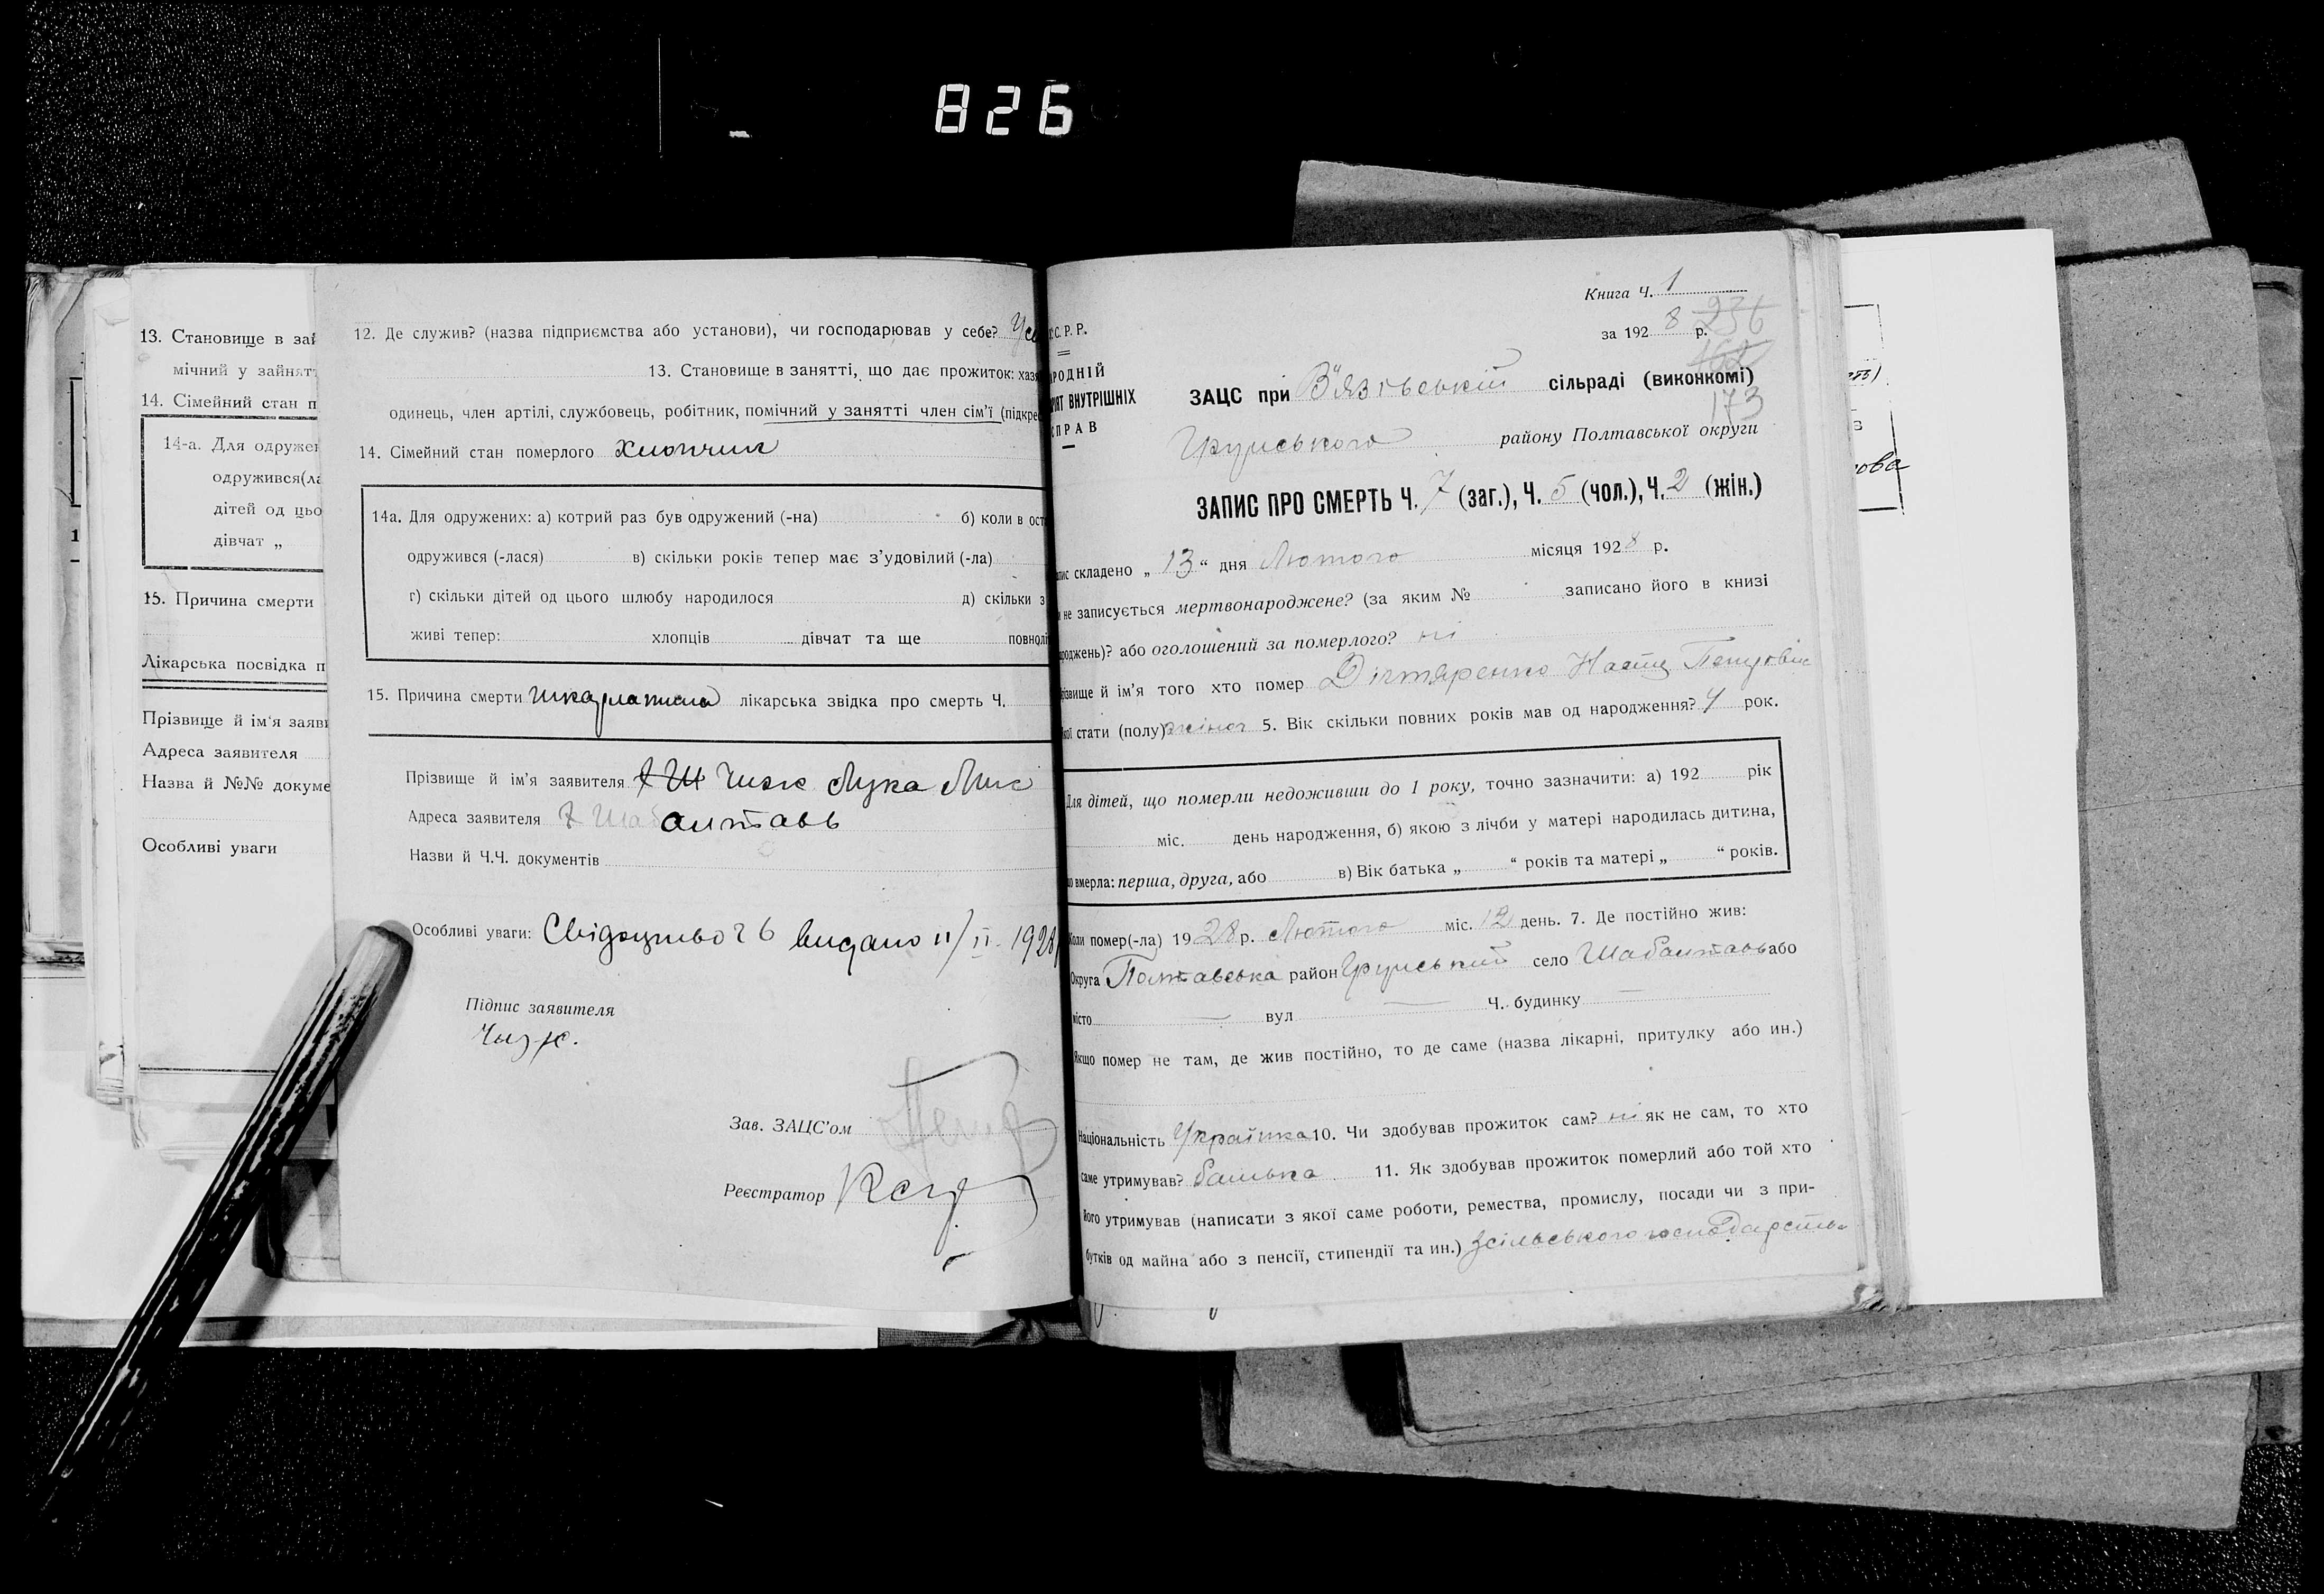 826
13. Становище в зай
мічний у зайнят
14. Сімейний стан п
14-а. Для одружен
одружився(ла
дітей од цьо
дівчат „
15. Причина смерти
Лікарська посвідка п
Прізвище й ім'я заяви
Адреса заявителя
Назва й №№ докуме
Особливі уваги
12. Де служив? (назва підприємства або установи), чи господарював у себе? Усе
13. Становище в занятті, що дає прожиток: хазя
одинець, член артілі, службовець, робітник, помічний у занятті член сім'ї (підкрес
14. Сімейний стан померлого хлопчик
14а. Для одружених: а) котрий раз був одружений (-на) б) коли в ост
одружився (-лася) в) скільки років тепер має з'удовілий (-ла)
г) скільки дітей од цього шлюбу народилося д) скільки з
живі тепер: хлопців дівчат та ще повнолі
15. Причина смерти шкарлатина лікарська звідка про смерть Ч.
Прізвище й ім'я заявителя Чиж Лука Мис
Адреса заявителя х Шабалтаєв
Назви й Ч.Ч. документів
Особливі уваги: Свідоцтво Ч 6 видано 11/II-1928
Підпис заявителя
Чиж.
Зав. ЗАЦС'ом
Реєстратор
Книга Ч. 1
за 1928 р.
236
173
С.Р.Р.
РОДНІЙ
РІЯТ ВНУТРІШНІХ
СПРАВ
ЗАЦС при В'язівській сільраді (виконкомі)
Грунського району Полтавської округи
ЗАПИС ПРО СМЕРТЬ Ч. 7 (заг.), Ч. 5 (чол.), Ч. 2 (жін.)
апис складено „13“ дня Лютого місяця 1928 р.
и не записується мертвонароджене? (за яким № записано його в книзі
роджень)? або оголошений за померлого? ні
різвище й ім'я того хто помер Діхтяренко Настя Петровн
кої стати (полу) жіноч 5. Вік скільки повних років мав од народження? 4 рок.
Для дітей, що померли недоживши до 1 року, точно зазначити: а) 192 рік
міс. день народження, б) якою з лічби у матері народилась дитина,
що вмерла: перша, друга, або в) Вік батька „ “ років та матері „ “ років.
Коли помер(-ла) 1928 р. Лютого міс. 12 день. 7. Де постійно жив:
Округа Полтавська район Грунський село Шабалтаєв або
місто вул Ч. будинку
Якщо помер не там, де жив постійно, то де саме (назва лікарні, притулку або ин.)
Національність Українка 10. Чи здобував прожиток сам? ні як не сам, то хто
саме утримував? батько 11. Як здобував прожиток померлий або той хто
його утримував (написати з якої саме роботи, ремества, промислу, посади чи з при-
бутків од майна або з пенсії, стипендії та ин.) з сільського господарства
ова